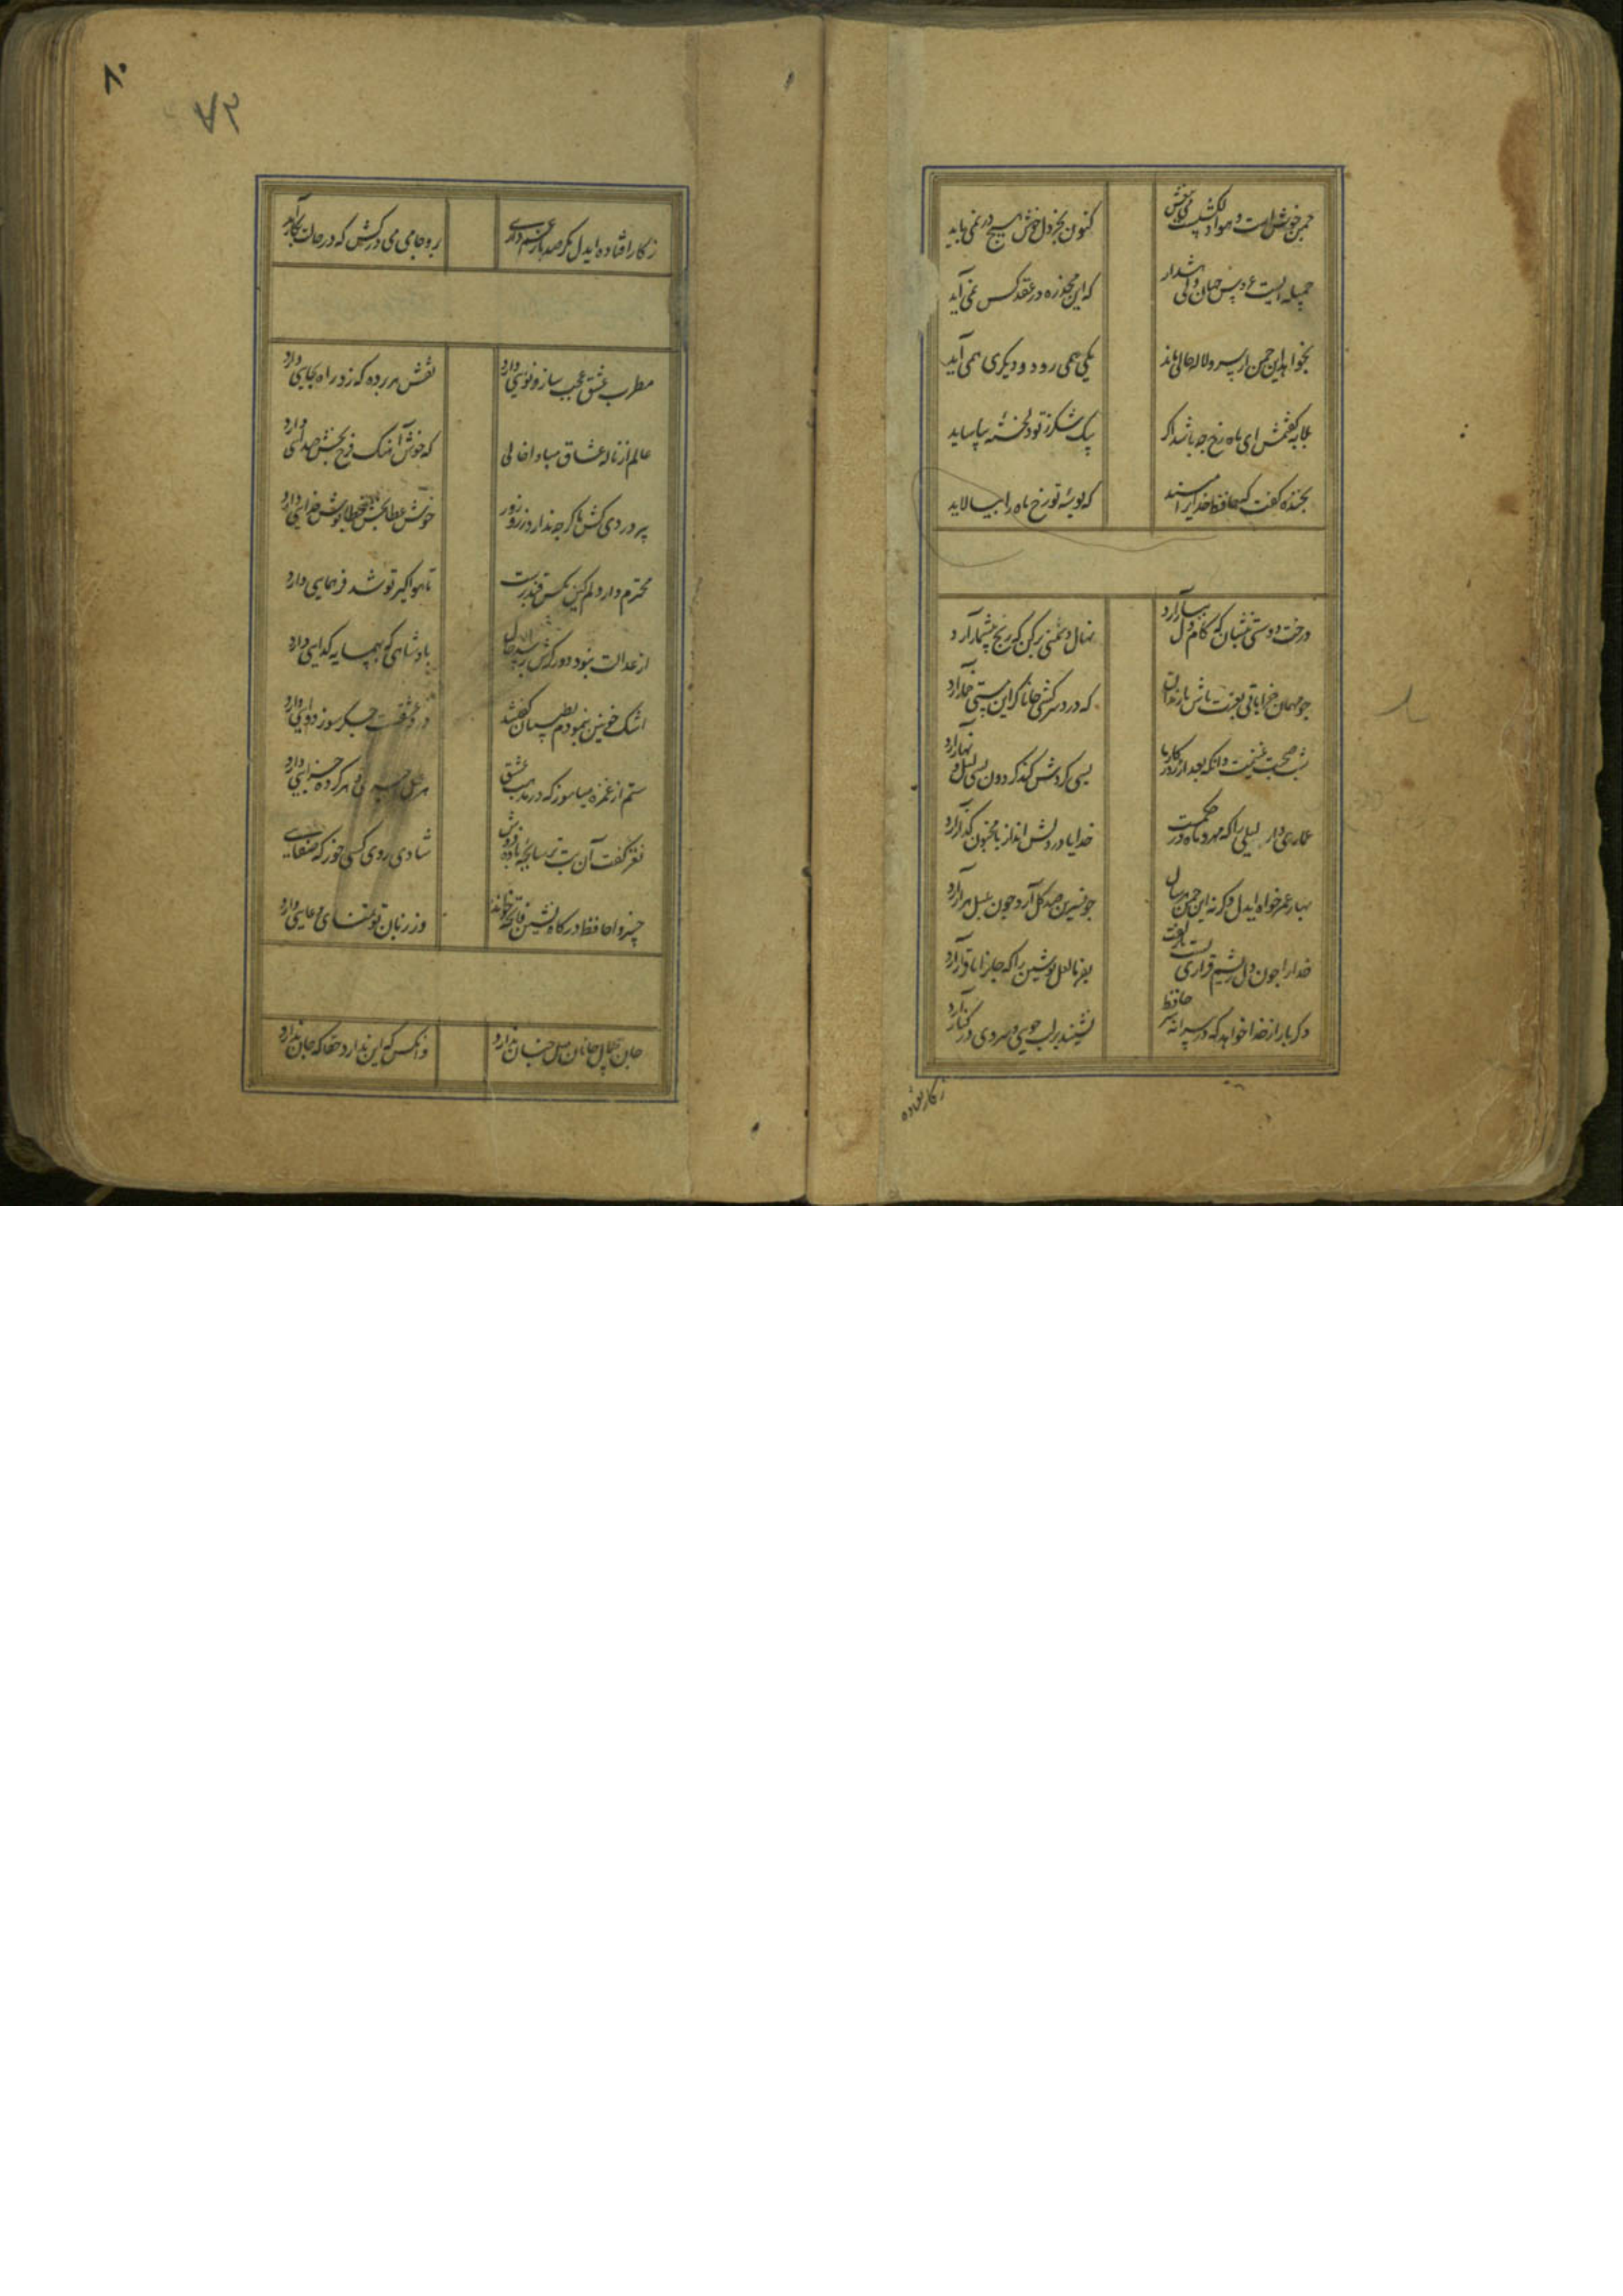 چمن خوش است و هوا دلکش است می بیغش
کنون بجز دل خوش هیچ در نمی باید
جمیله ایست عروس جهان ولی هشدار
که این مخدره در عقد کس نمی آید
نخواهد این چمن از سرو و لاله خالی ماند
یکی همی رود و دیگری همی آید
بلابه گفتمش ای ماه رخ چه باشد اگر
بیک شکر ز تو دلخسته بیاساید
بخنده گفت که حافظ خدایرا مپسند
که بوسه تو رخ ماه را بیالاید
درخت دوستی بنشان که کام دل ببار آرد
نهال دشمنی برکن که رنج بیشمار آرد
چو مهمان خراباتی بعزت باش با رندان
که درد سر کشی جانا گر این مستی خمار آرد
شب صحبت غنیمت دان که بعد از روزگار ما
بسی گردش کند گردون بسی لیل و نهار آرد
عماری دار لیلی را که مهد ماه در حکمست
خدایا در دلش انداز تا بر مجنون گذار آرد
بهار عمر خواه ایدل وگرنه این چمن هر سال
چو نسرین صد گل آرد چون بلبل هزار آرد
خدا را چون دل ریشم قراری بست با زلفت
بفرما لعل نوشین را که جانرا با قرار آرد
دگر بار از خدا خواهد که در پیرانه سر حافظ
نشیند بر لب جویی و سروی در کنار آرد
ز کار افتاده
۸۰
۷۲
ز کار افتاده ایدل که صد بار غم داری
برو جامی می درکش که در حالت بکار آید
مطرب عشق عجب ساز و نوایی دارد
نقش هر پرده که زد راه بجایی دارد
عالم از ناله عشاق مبادا خالی
که خوش آهنگ و فرح بخش صدایی دارد
پیر دردی کش ما گرچه ندارد زر و زور
خوش عطابخش و خطاپوش خدایی دارد
محترم دار دلم کین مگس قندپرست
تا هواگیر تو شد فر همایی دارد
از عدالت نبود دور گرش پرسد حال
پادشاهی که بهمسایه گدایی دارد
اشک خونین بنمودم بطبیبان گفتند
درد عشقست و جگرسوز دوایی دارد
ستم از غمزه میاموز که در مذهب عشق
هر عمل اجری و هر کرده جزایی دارد
نغز گفت آن بت ترسا بچه باده فروش
شادی روی کسی خور که صفایی
خسروا حافظ درگاه نشین فاتحه خواند
وز زبان تو تمنای دعایی دارد
جان بی جمال جانان میل جهان ندارد
وانکس که این ندارد حقا که جان ندارد